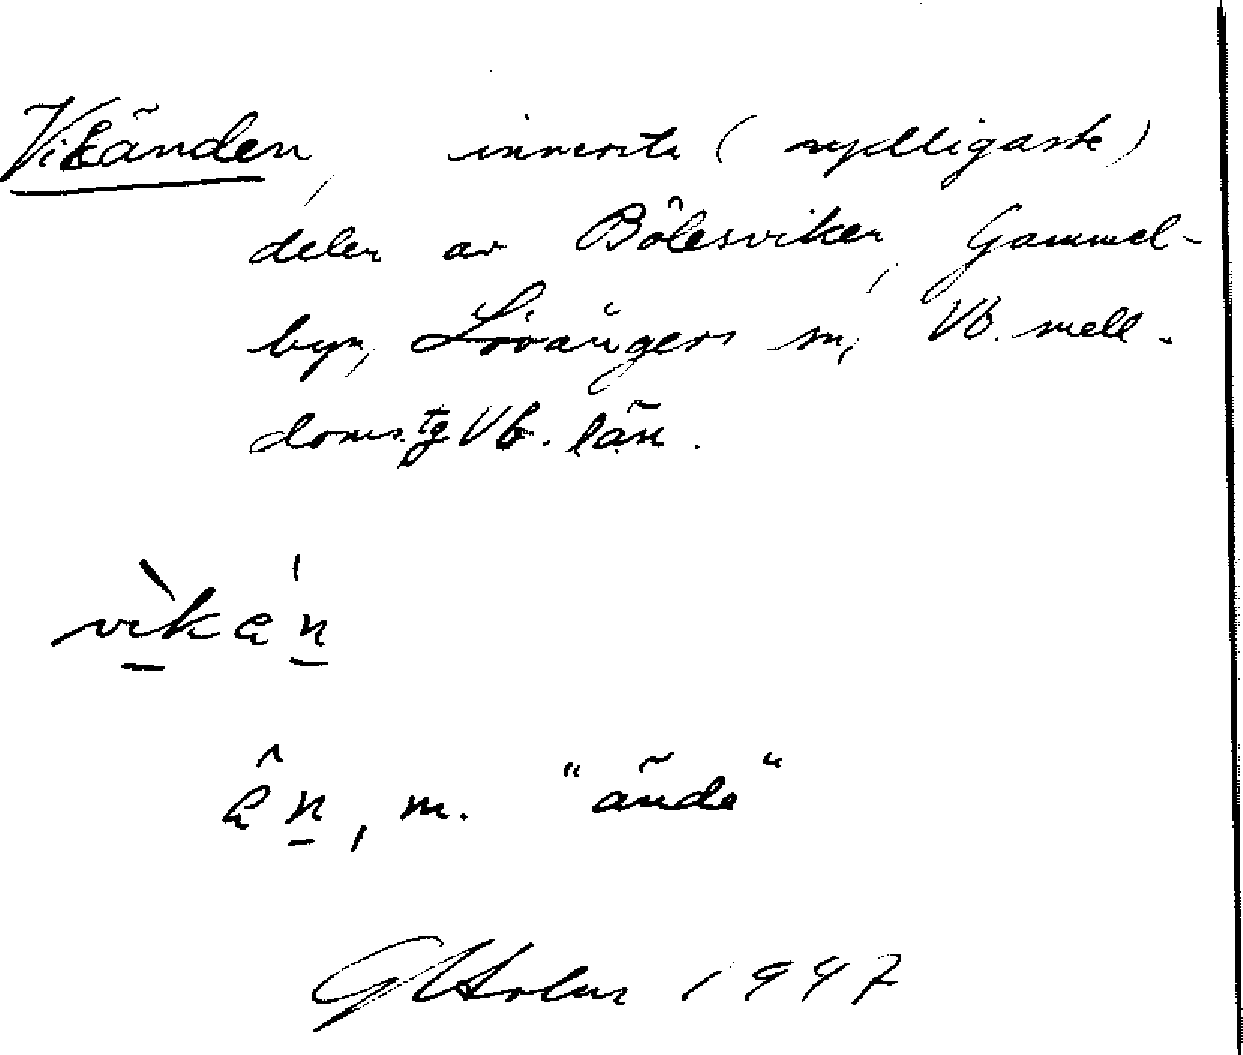 Vikänden, innersta (sydligaste)
delen av Bölesviken, Gammel-
byn, Lövångers sn, Vb. mell.
doms.tg Vb. län.
vikän
än, m. "ände"
G Holm 1947